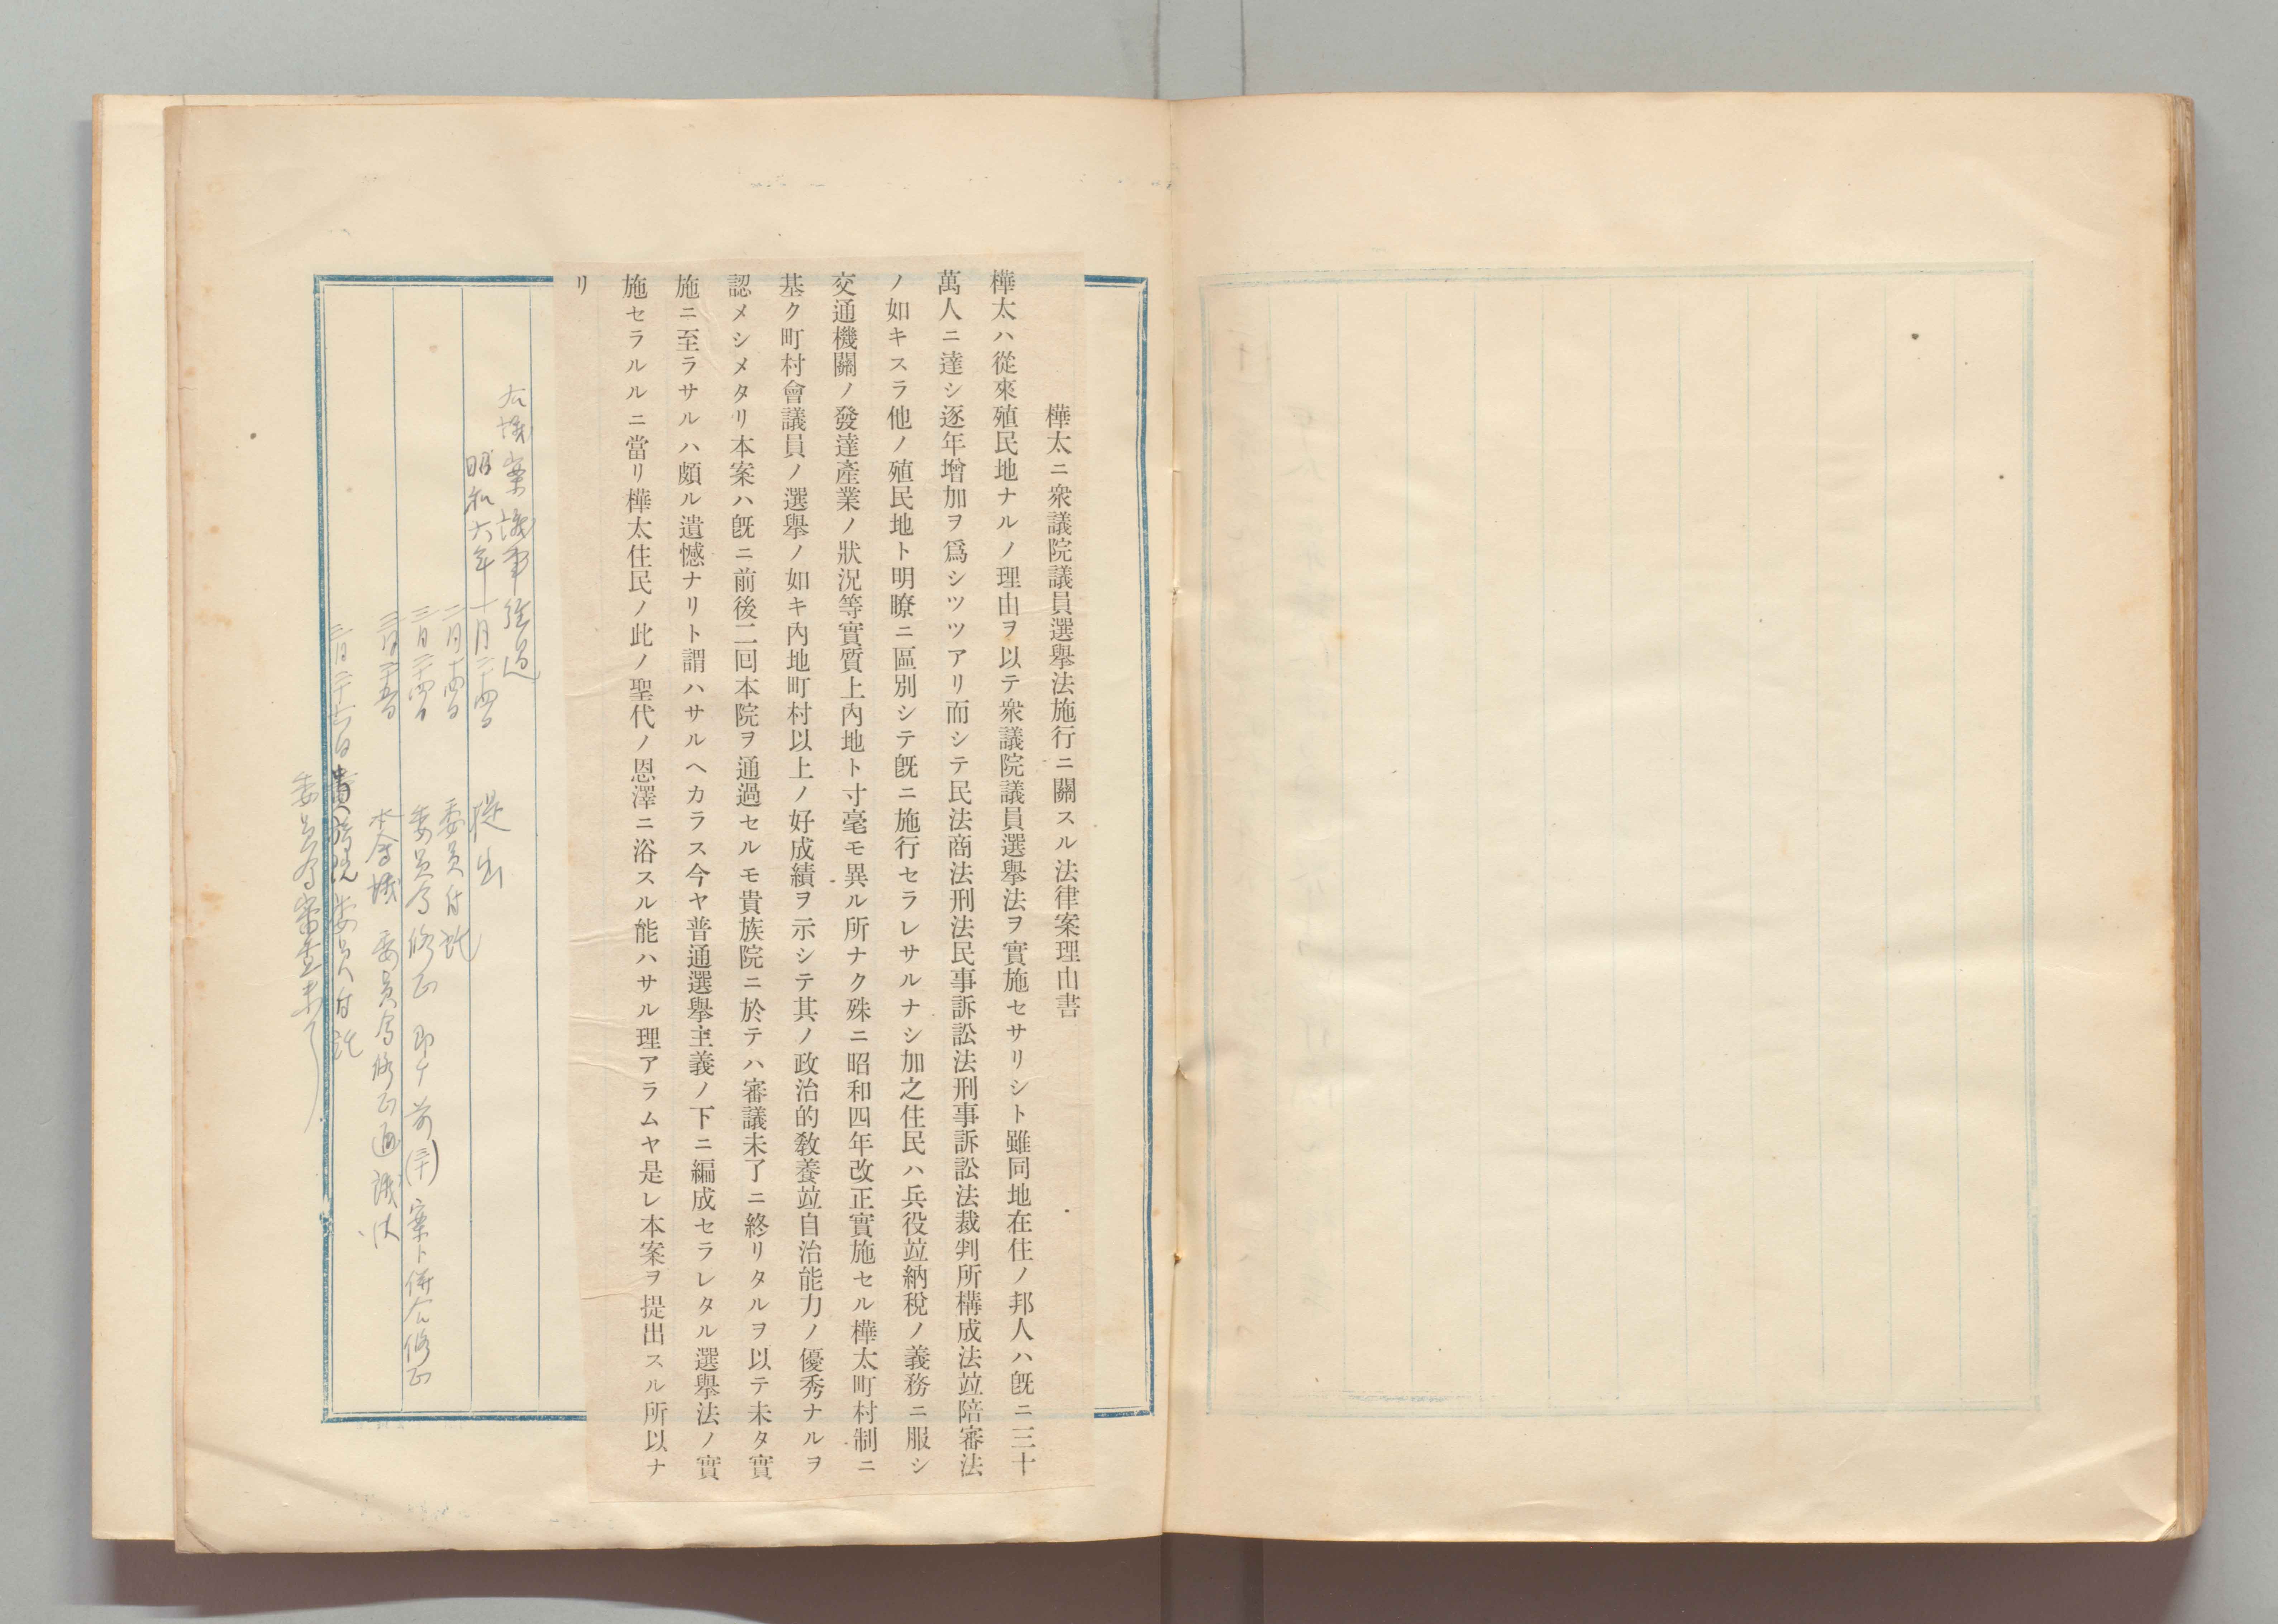 樺太ニ衆議院議員選擧法施行ニ關スル法律案理由書
樺太ハ從來殖民地ナルノ理由ヲ以テ衆議院議員選擧法ヲ實施セサリシト雖同地在住ノ邦人ハ既ニ三十
萬人ニ達シ逐年增加ヲ爲シツツアリ而シテ民法商法刑法民事訴訟法刑事訴訟法裁判所構成法竝陪審法
ノ如キスラ他ノ殖民地ト明瞭ニ區別シテ既ニ施行セラレサルナシ加之住民ハ兵役竝納稅ノ義務ニ服シ
交通機關ノ發達產業ノ狀況等實質上內地ト寸毫モ異ル所ナク殊ニ昭和四年改正實施セル樺太町村制ニ
基ク町村會議員ノ選擧ノ如キ內地町村以上ノ好成績ヲ示シテ其ノ政治的敎養竝自治能力ノ優秀ナルヲ
認メシメタリ本案ハ既ニ前後二回本院ヲ通過セルモ貴族院ニ於テハ審議未了ニ終リタルヲ以テ未タ實
施ニ至ラサルハ頗ル遺憾ナリト謂ハサルヘカラス今ヤ普通選擧主義ノ下ニ編成セラレタル選擧法ノ實
施セラルルニ當リ樺太住民ノ此ノ聖代ノ恩澤ニ浴スル能ハサル理アラムヤ是レ本案ヲ提出スル所以ナ
リ
右議案議事經過
昭和六年一月二十四日 提出
二月十四日 委員付託
三月二十四日 委員會修正 即チ前(三十)案ト併合修正
三月二十五日 本會議 委員會修正通議決
三月二十六日 貴族院委員付託
委員會審査未了